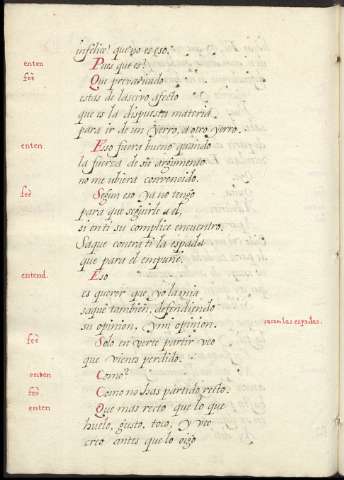 infelice! que no es eso.
enten Pues que es?
feè Que prevaricado
estas de lascivo afecto
que es la dispuesta materia
para ir de un yerro, a otro yerro.
enten Eso fuera bueno quando
la fuerza de su argumento
no me ubiera convencido.
feè Segun eso ya no tengo
para que seguirle a el,
si en ti su complice encuentro.
Saque contra ti la espada
que para el empuñe.
entend. Eso
es querer que yo la mia
saquè tambien, defendiendo
su opinion, y mi opinion. sacan las espadas.
feè Solo en verte partir veo
que vienes perdido.
enten Como?
feè Como no has partido recto.
enten Que mas recto que lo que
huelo, gusto, toco, y veo
creo antes que lo oigo